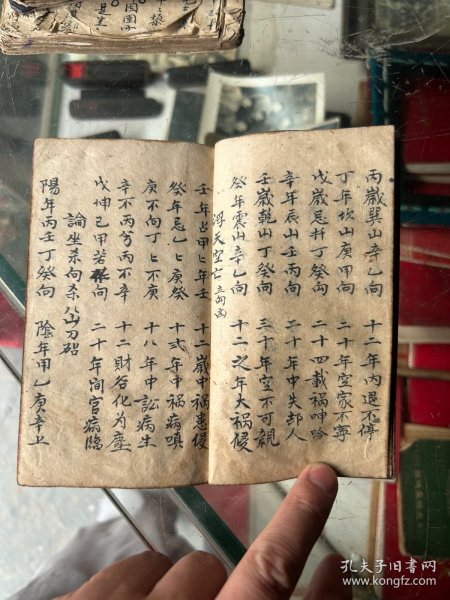 丙歲巽山辛乙向 十二年內退不停
丁年坎山庚甲向 二十年空家不寧
戊歲艮丙丁癸向 二十四載禍呻吟
辛年辰山壬丙向 二十年中失却人
壬歲乾山丁癸向 三十年空不可親
癸年震山辛乙向 十二之年大禍侵
浮天空亡
壬年占甲七年壬 十二歲中禍患侵
癸年忌乙七庚癸 十式年中禍病嗔
庚不向丁七不庚 十八年中訟病生
辛不丙方丙不辛 十二財谷化為塵
戊坤己甲若向 二十年間官病臨
論坐杀向杀八山刀砧
陽年丙壬丁癸向 陰年甲乙庚辛上
孔夫子旧书网
www.kongfz.com